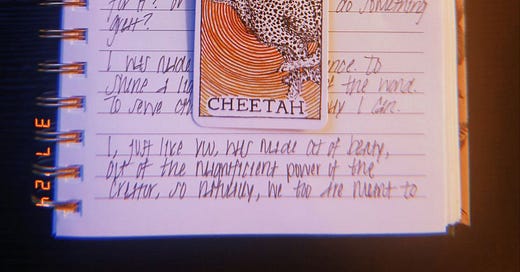 for it? Or do something
great?
I was made to
shine a of the world.
To serve I can.
CHEETAH
I, just like you, was made out of beauty,
out of the magnificent power of the
creator, so naturally, we too are meant to
3 1 7 24